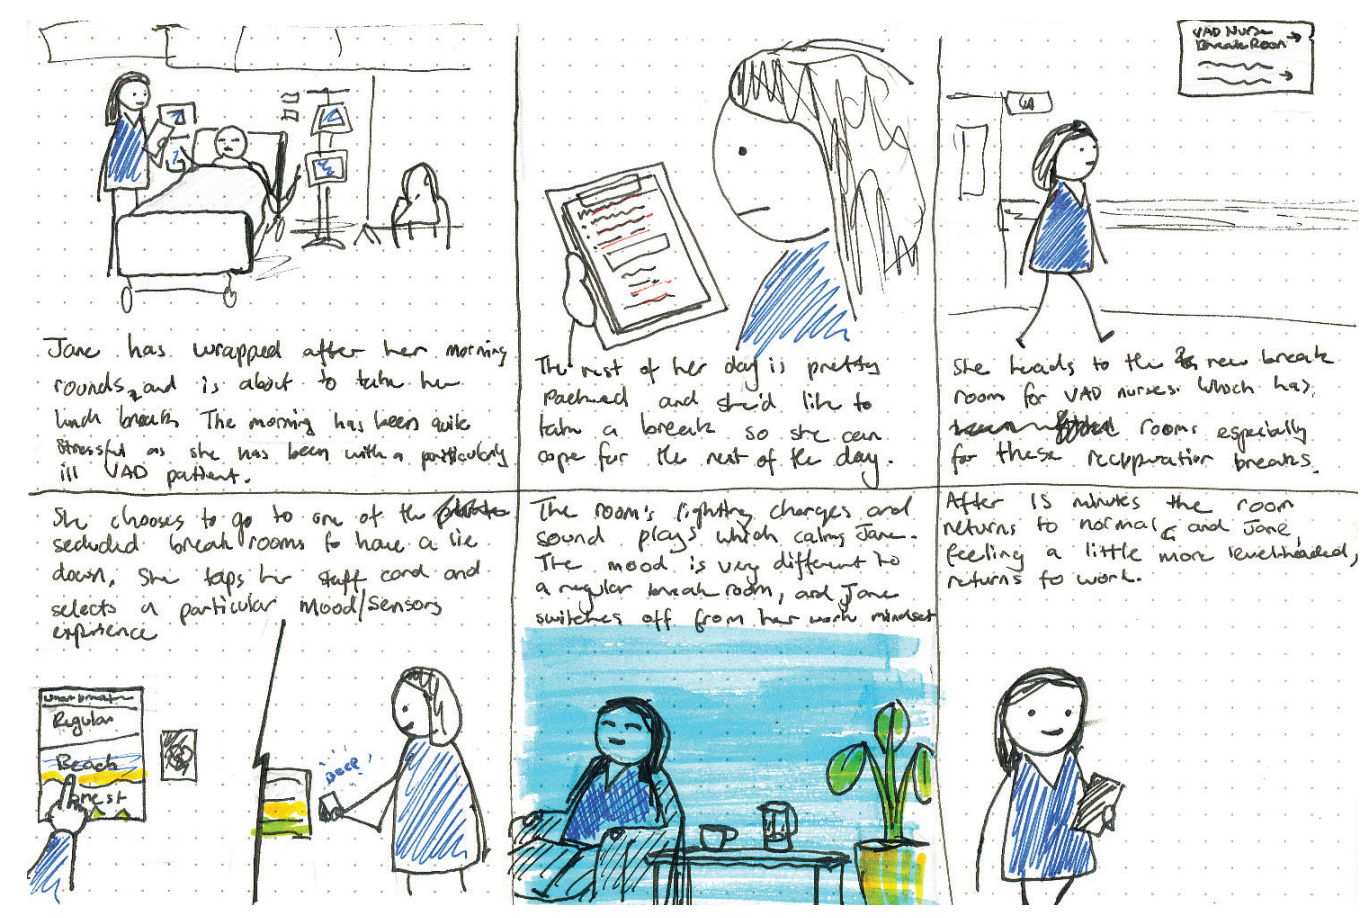 Jane has wrapped after her morning
rounds, and is about to take her
lunch break. The morning has been quite
stressful as she has been with a particularly
ill VAD patient.
The rest of her day is pretty
packed and she'd like to
take a break so she can
cope for the rest of the day.
VAD Nurse
Break Room →
→
She heads to the new break
room for VAD nurses. Which has
rooms especially
for these recuperation breaks.
She chooses to go to one of the
secluded break rooms to have a lie
down. She taps her staff card and
selects a particular Mood/Sensory
experience
Regular
Beach
Forest
BEEP
The room's lighting changes and
sound plays which calms Jane.
The mood is very different to
a regular break room, and Jane
switches off from her work mindset
After 15 minutes the room
returns to normal, and Jane,
feeling a little more levelheaded,
returns to work.